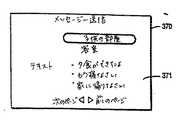 メッセージ送信
子供の部屋
浴室
テキスト
・夕食ができたよ
・もう寝なさい
・家に帰りなさい
次のページ ◁ ▷ 前のページ
370
371